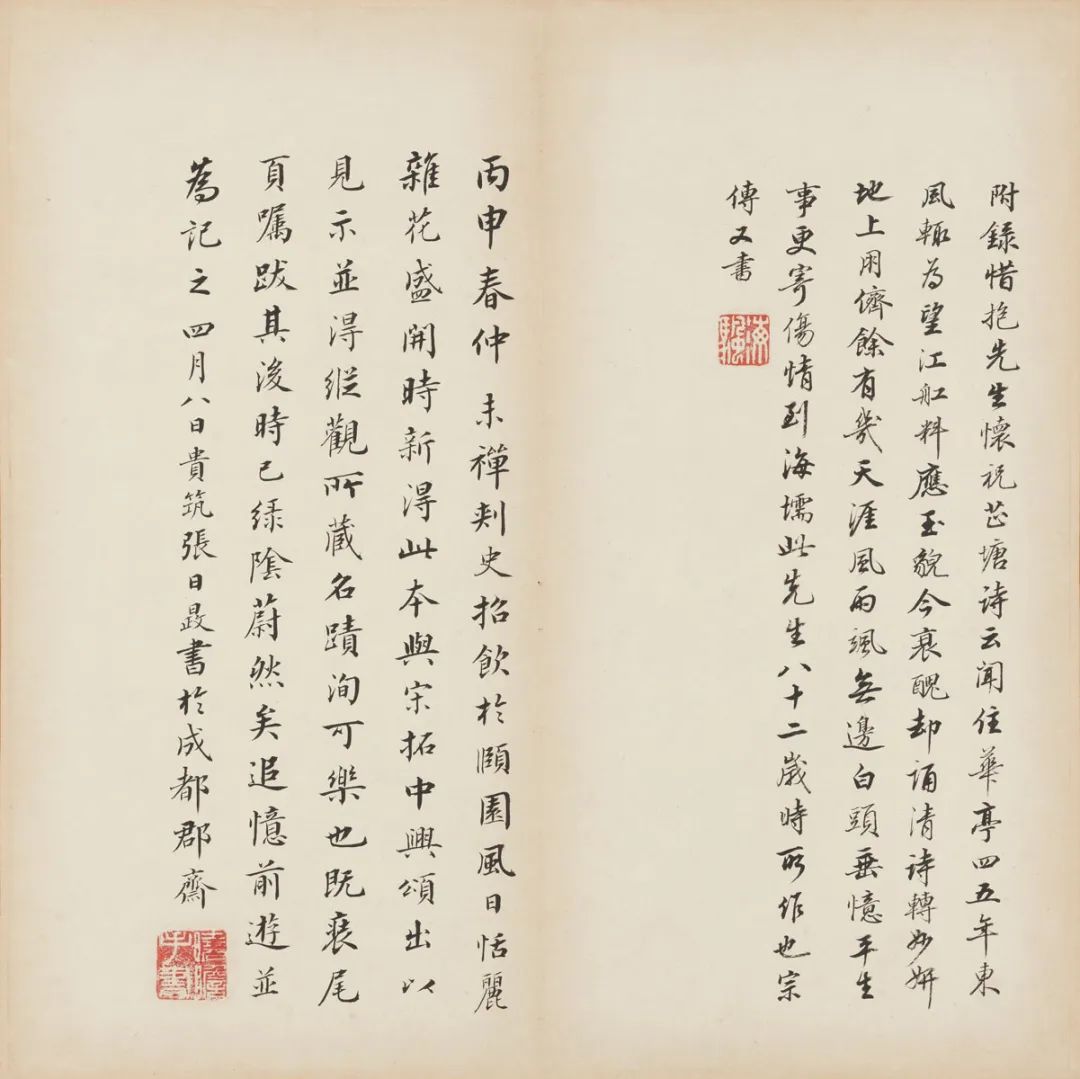 附録惜抱先生懷祝芷塘诗云闻住華亭四五年東
風輙為望江舡料應玉貌今衰醜却诵清诗轉妙妍
地上用儕餘有幾天涯風雨颯無邊白頭垂憶平生
事更寄傷情到海壖此先生八十二歲時所作也宗
傳又書
丙申春仲未禪刺史招飲於頤園風日恬麗
雜花盛開時新得此本與宋拓中興頌出以
見示並得縱觀所藏名蹟洵可樂也既裝尾
頁嘱跋其後時已緑陰蔚然矣追憶前遊並
為記之四月八日貴筑張日晸書於成都郡齋